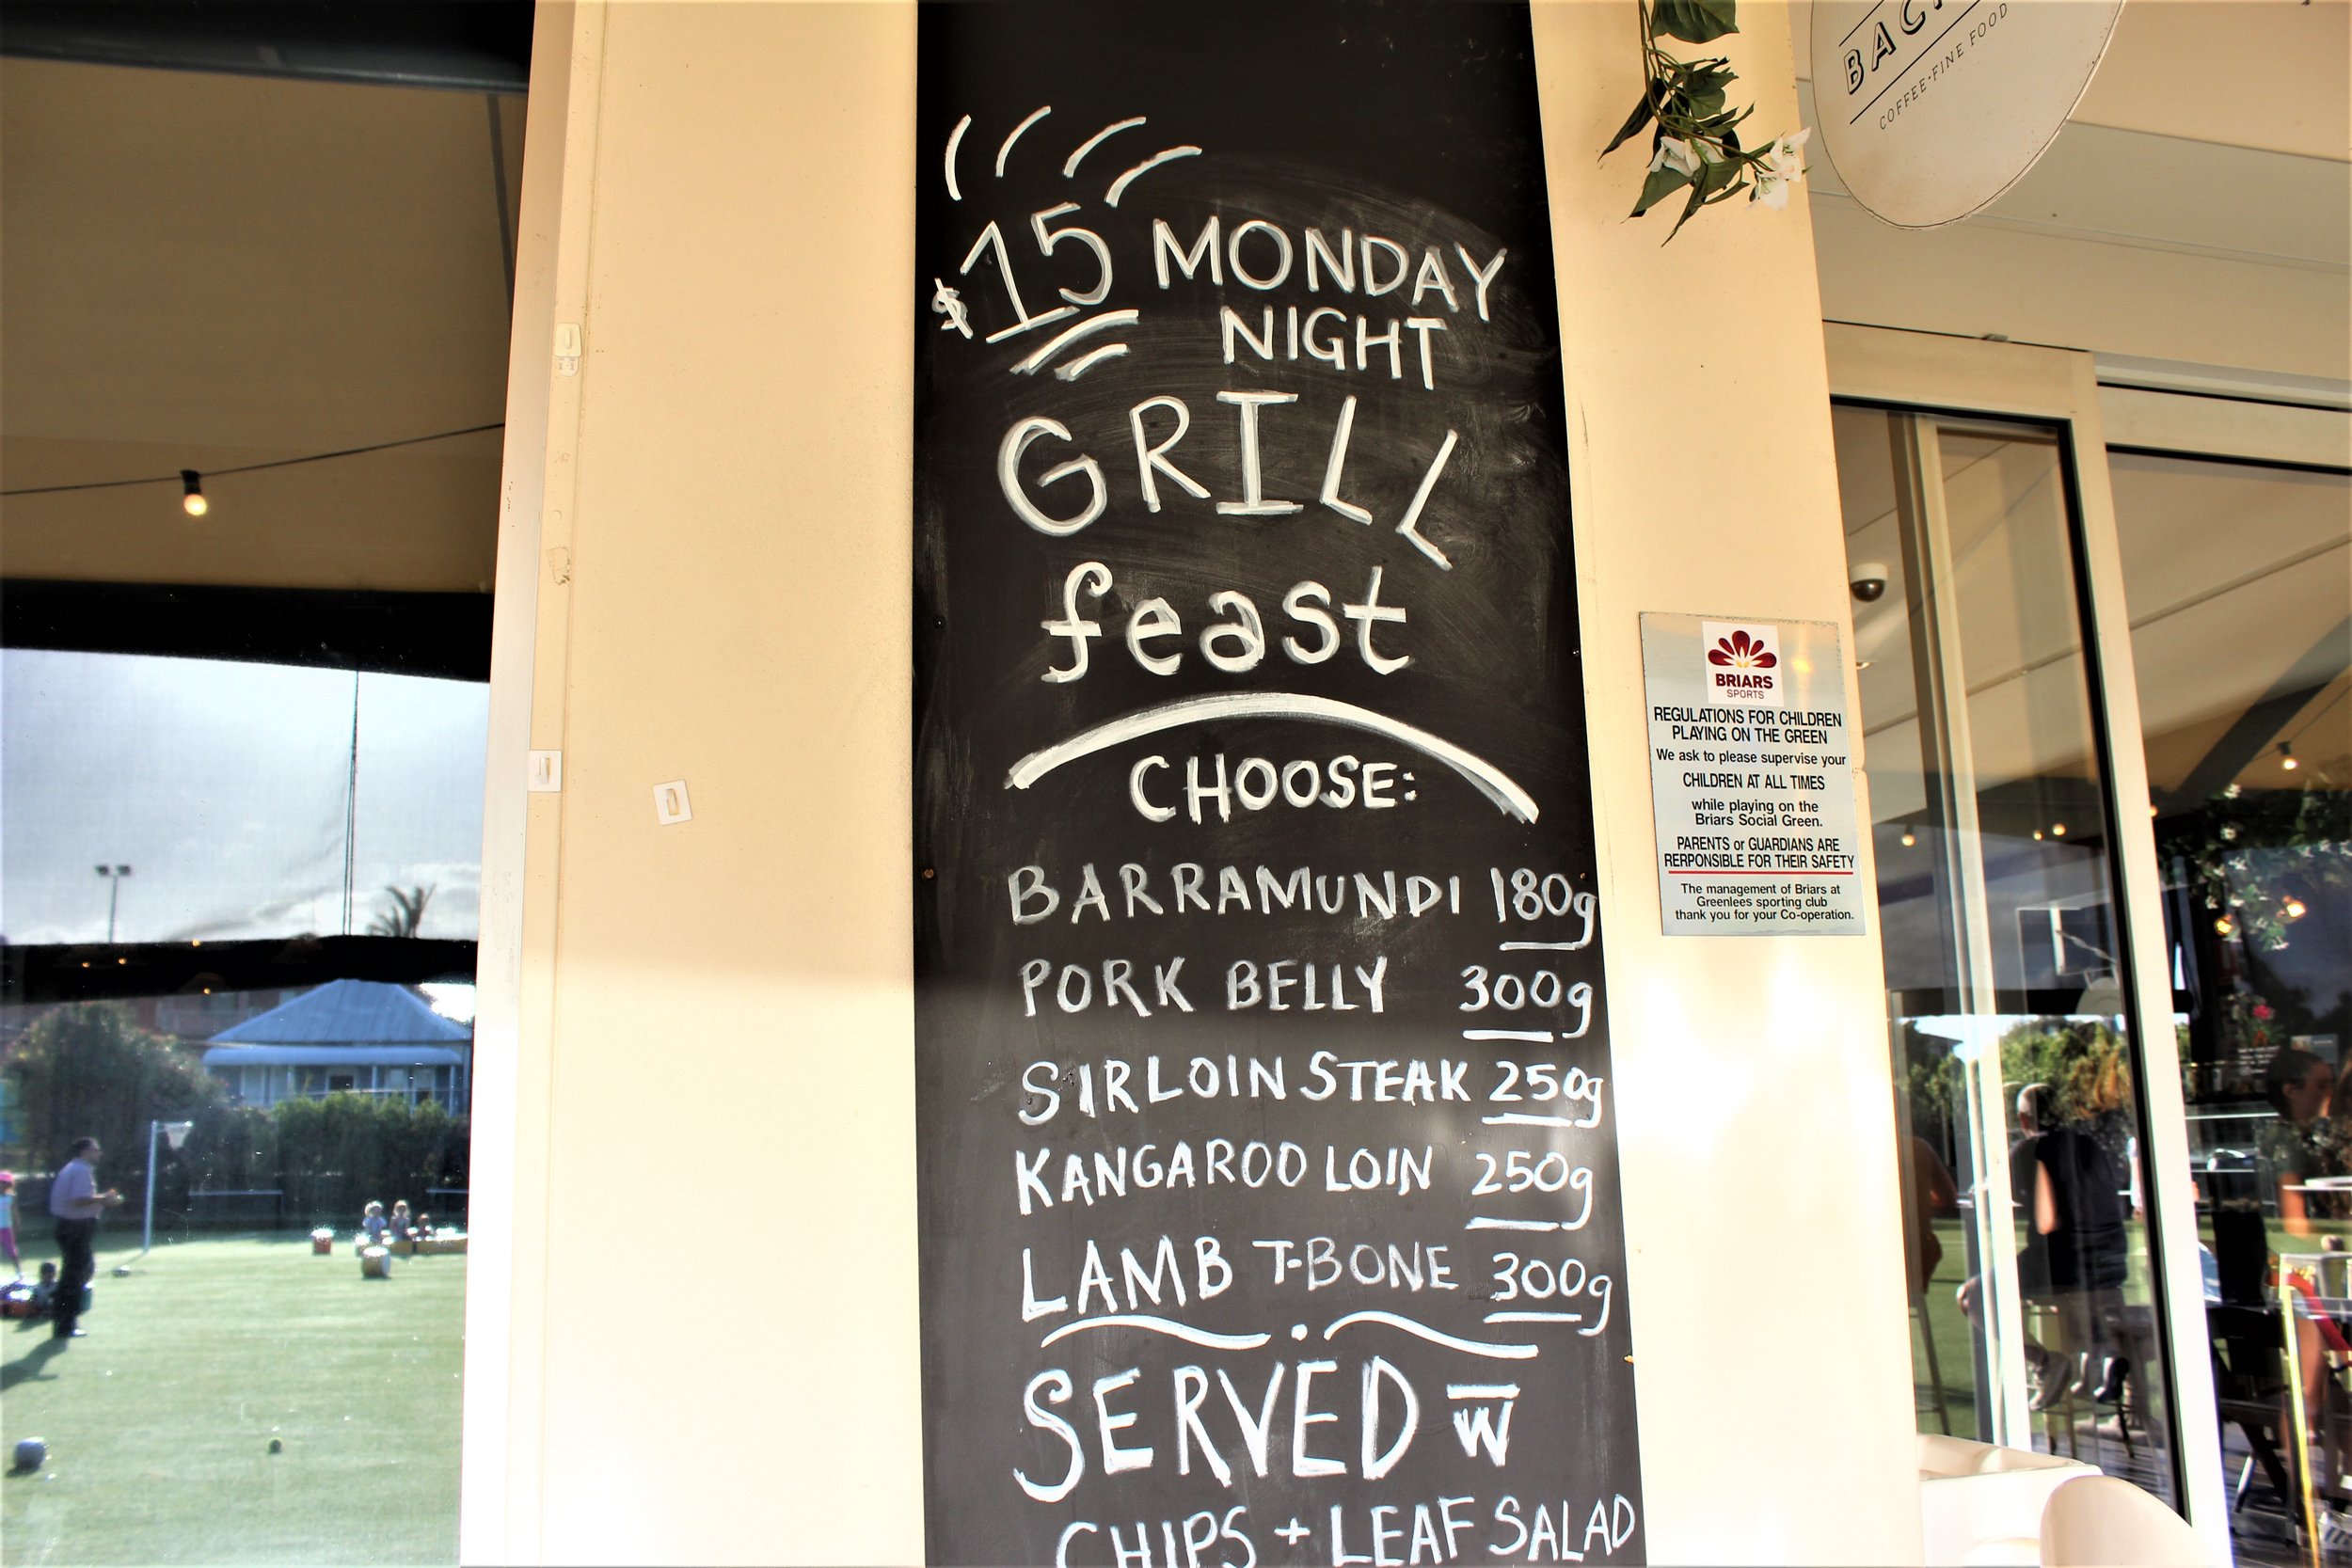 $15 MONDAY
NIGHT
GRILL
feast
CHOOSE:
BARRAMUNDI 180g
PORK BELLY 300g
SIRLOIN STEAK 250g
KANGAROO LOIN 250g
LAMB T-BONE 300g
SERVED w̅
CHIPS + LEAF SALAD
COFFEE-FINE FOOD
BRIARS
SPORTS
REGULATIONS FOR CHILDREN
PLAYING ON THE GREEN
We ask to please supervise your
CHILDREN AT ALL TIMES
while playing on the
Briars Social Green.
PARENTS or GUARDIANS ARE
RERPONSIBLE FOR THEIR SAFETY
The management of Briars at
Greenlees sporting club
thank you for your Co-operation.